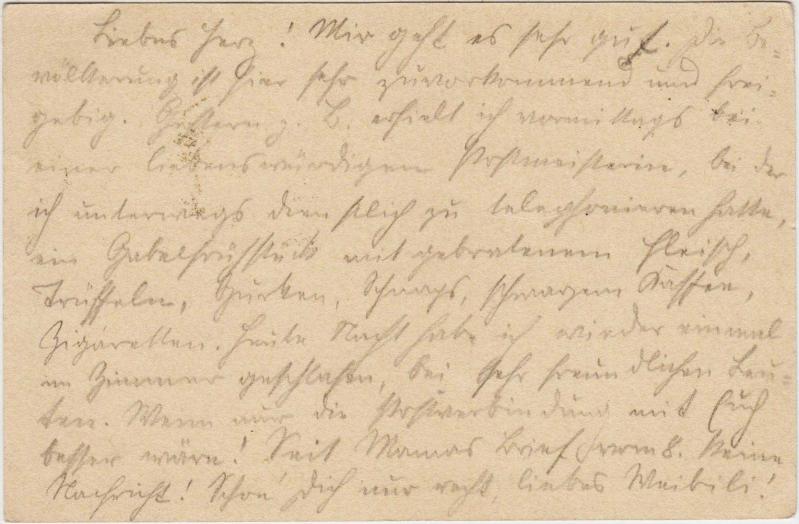 Liebes Herz! Mir geht es sehr gut. Die Be-
völkerung ist hier sehr zuvorkommend und frei-
gebig. Gestern z. B. erhielt ich vormittags bei
einer liebenswürdigen Postmeisterin, bei der
ich unterwegs dienstlich zu telephonieren hatte,
ein Gabelfrühstück mit gebratenem Fleisch,
Trüffeln, Gurken, Schnaps, schwarzem Kaffee,
Zigaretten. Heute Nacht habe ich wieder einmal
im Zimmer geschlafen, bei sehr freundlichen Leu-
ten. Wenn nur die Postverbindung mit Euch
besser wäre! Seit Mamas Brief vom 8. keine
Nachricht! Schon' Dich nur recht, liebes Weibili!